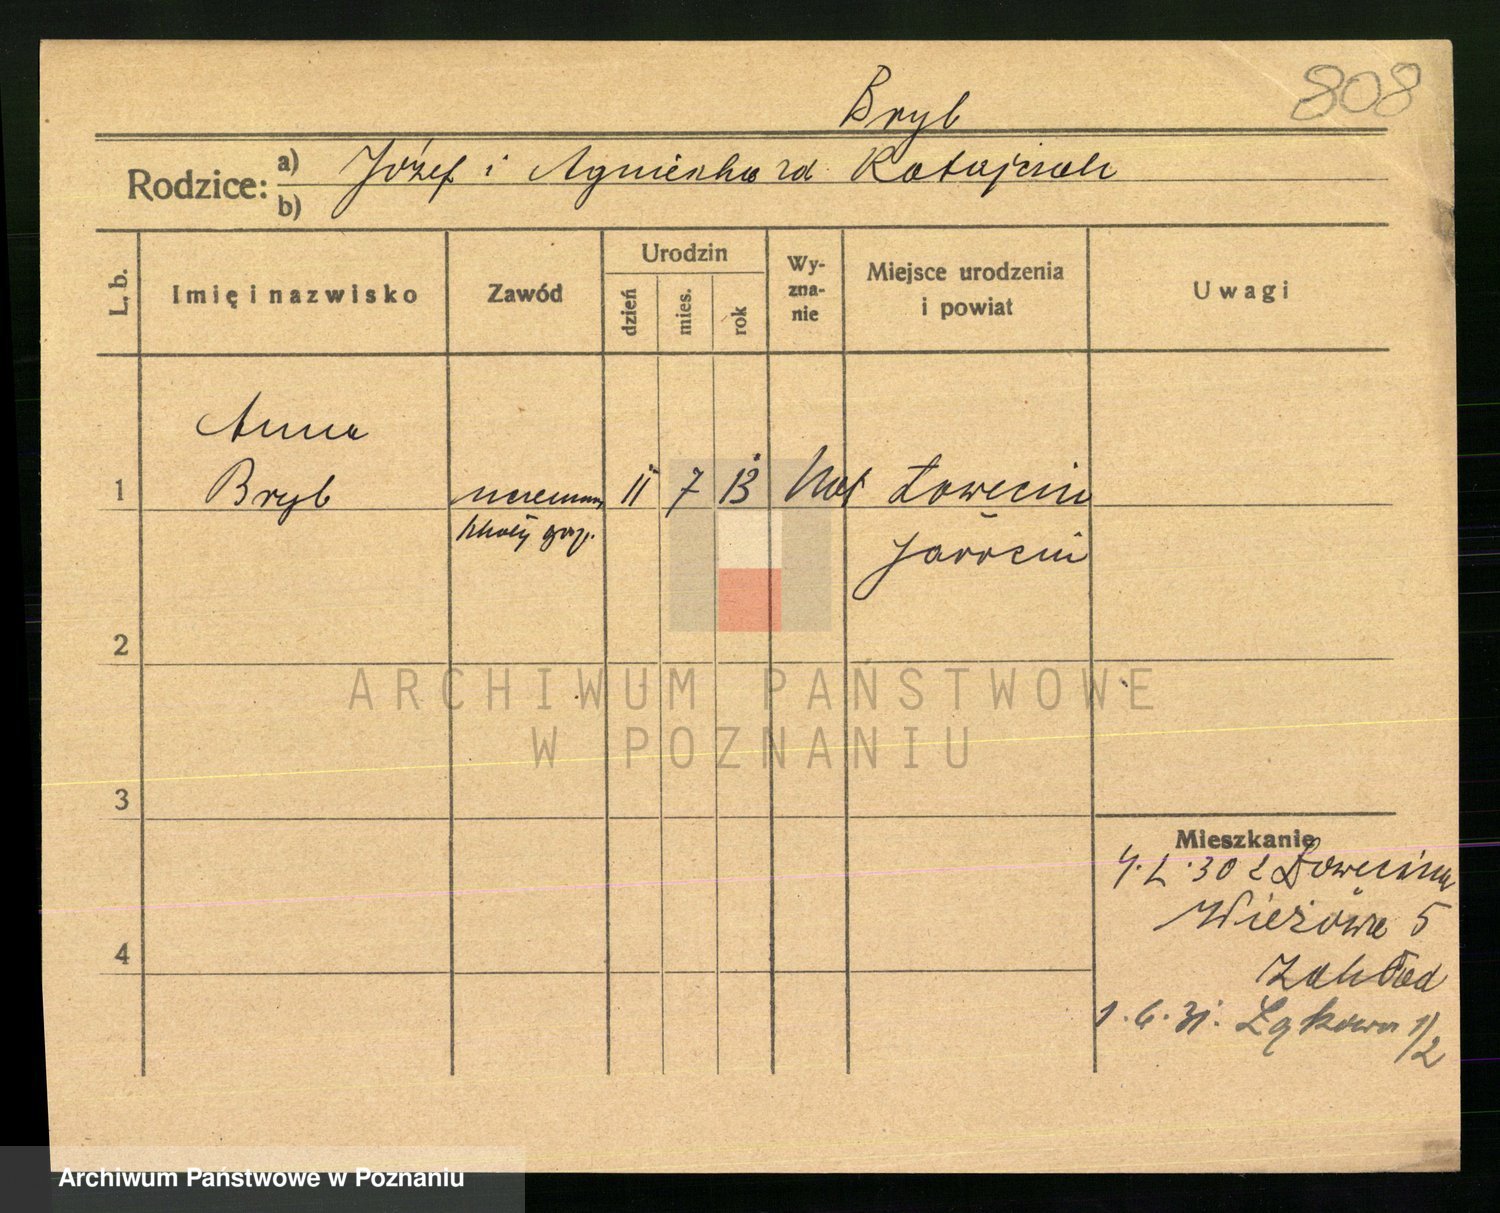 808
Bryb
Rodzice: a) Józef i Agnieszka zd. Ratajczak
b)
L. b.
Imię i nazwisko
Zawód
Urodzin
dzień
mies.
rok
Wy-
zna-
nie
Miejsce urodzenia
i powiat
Uwagi
Anna
1 Bryb 11 7 13 Kat Łowęcin
szkoły gosp. Jarocin
2
3
4
Mieszkanie
30 z Łowęcina
Wieżowa 5
Zakład
1.6.31. Łąkowa 1/2
ARCHIWUM PAŃSTWOWE
W POZNANIU
Archiwum Państwowe w Poznaniu